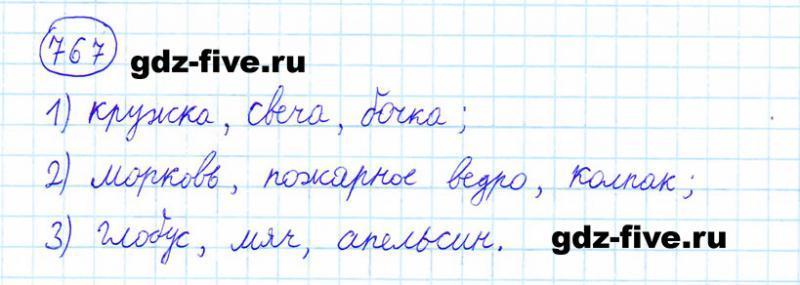 767 gdz-five.ru
1) кружка, свеча, бочка;
2) морковь, пожарное ведро, колпак;
3) глобус, мяч, апельсин. gdz-five.ru